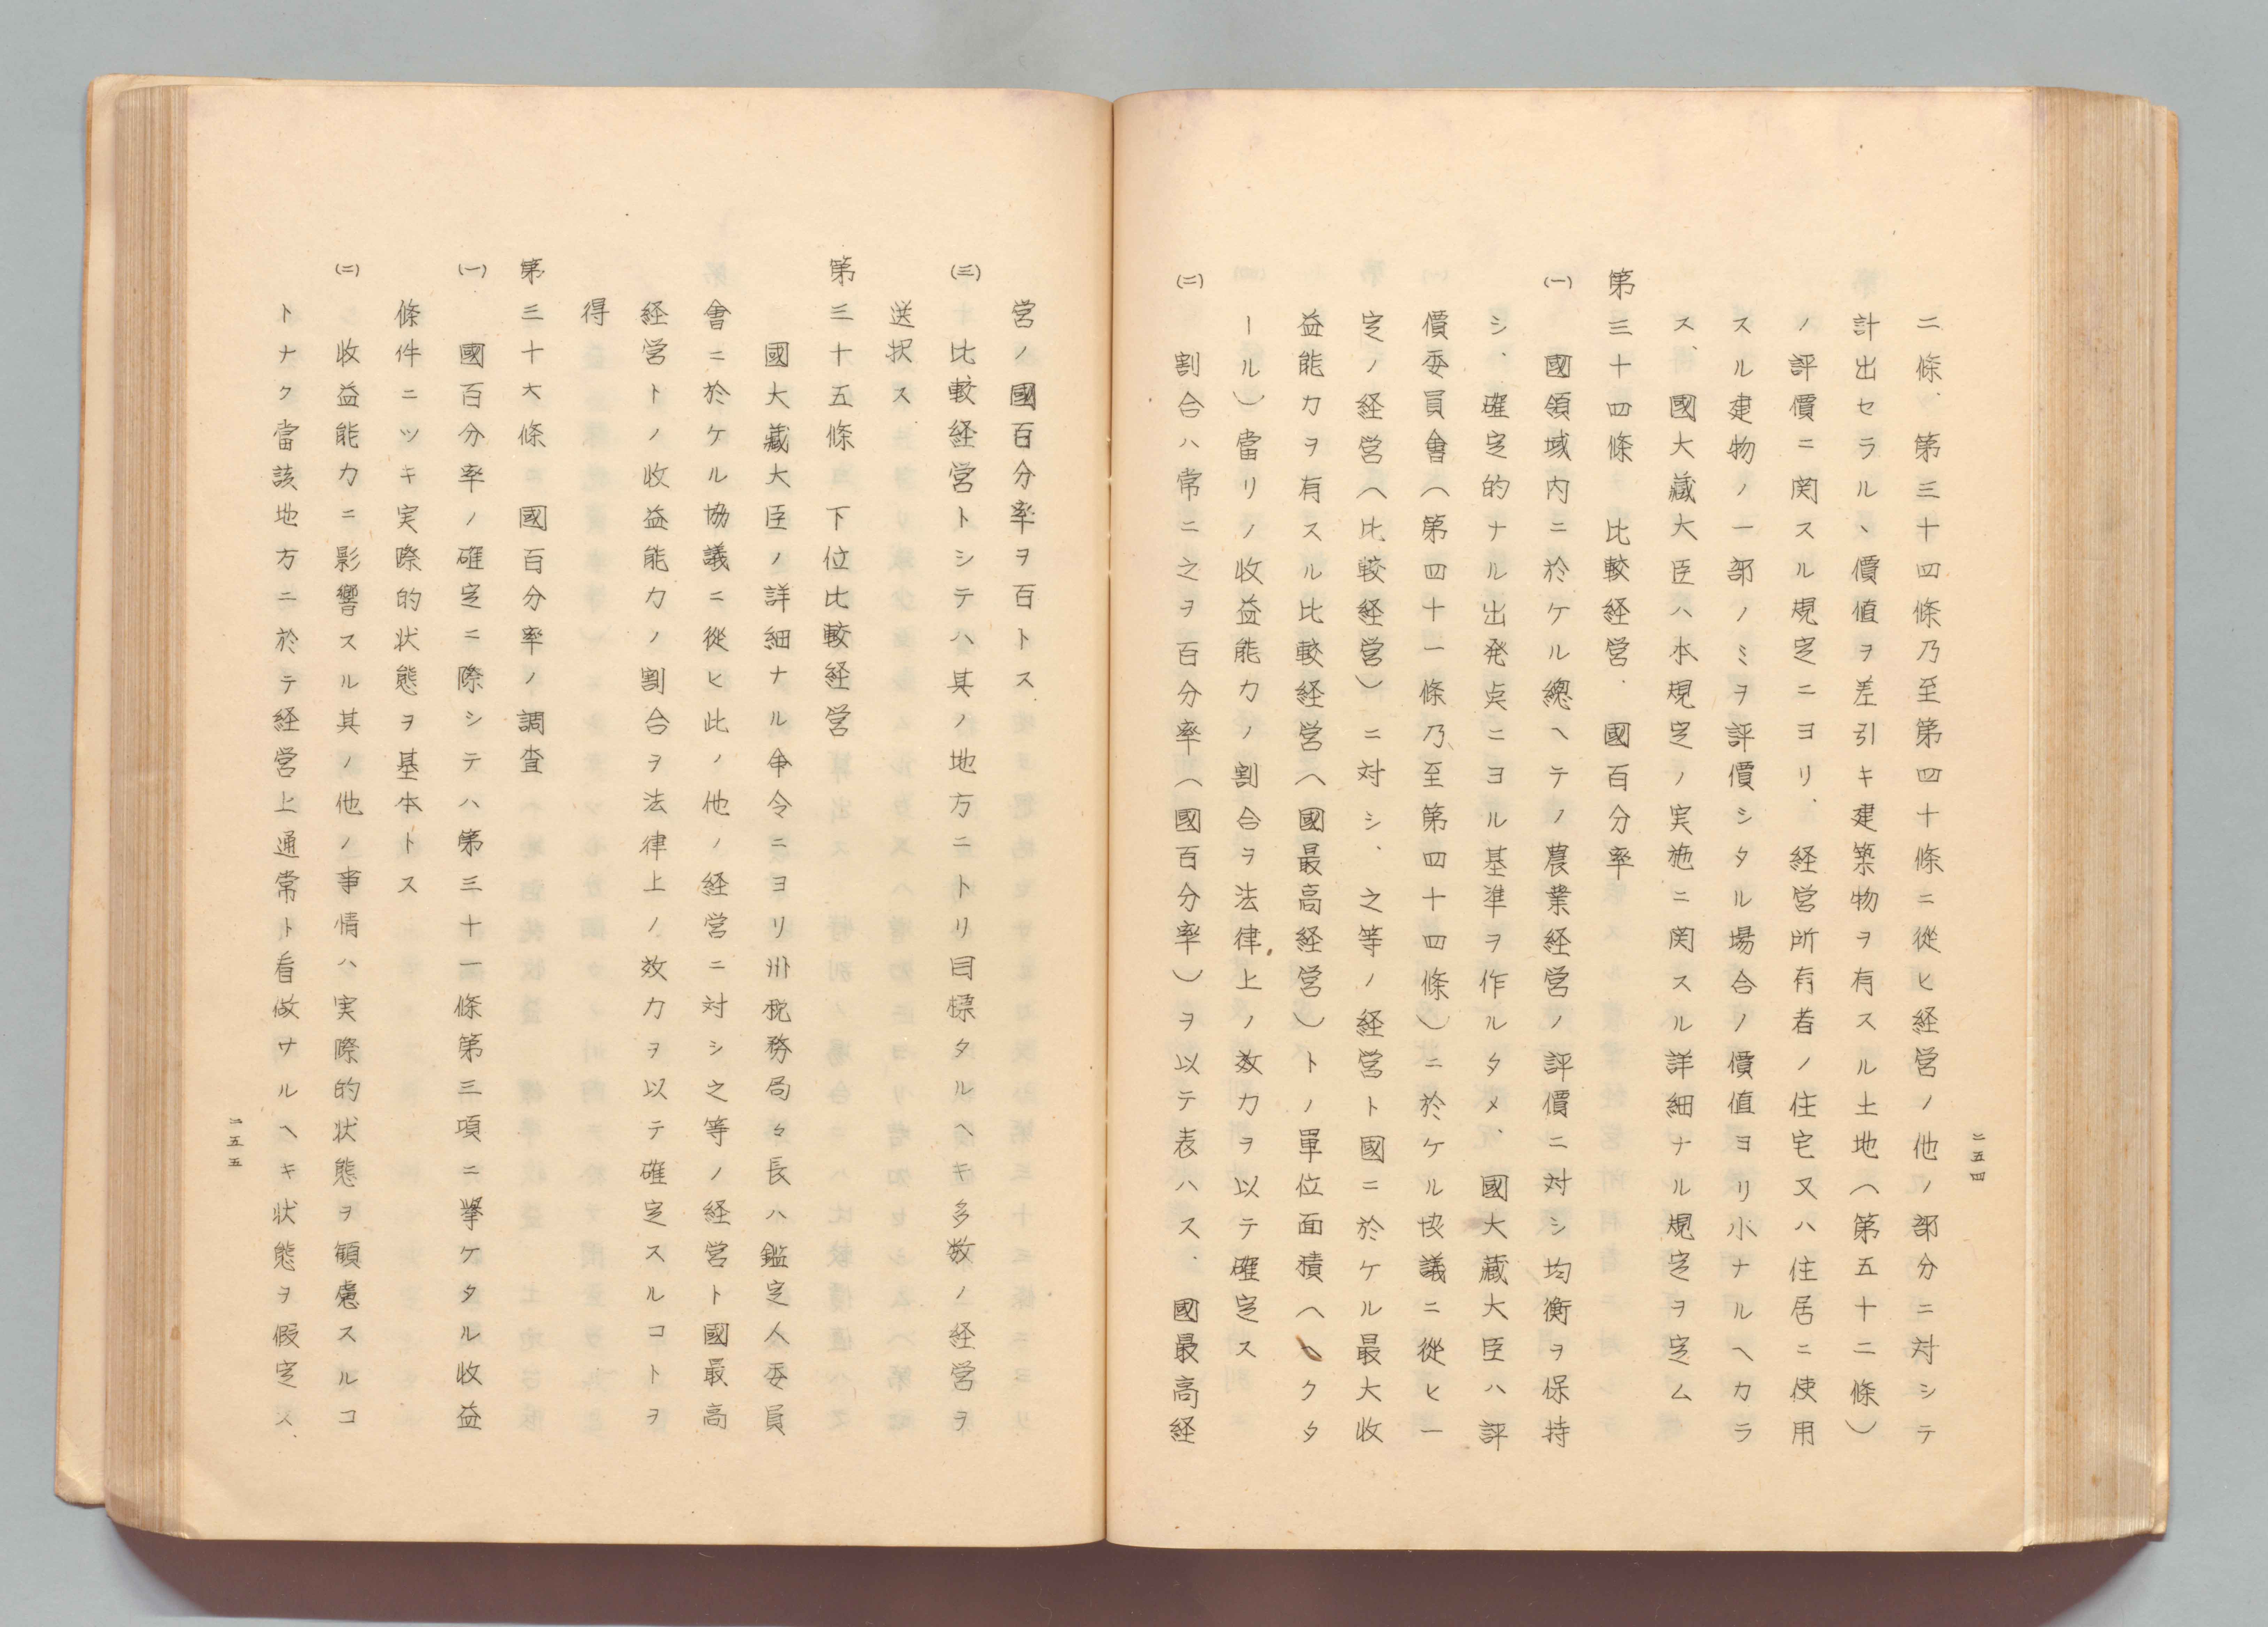 二條、第三十四條乃至第四十條ニ從ヒ経営ノ他ノ部分ニ対シテ
計出セラル、價値ヲ差引キ建築物ヲ有スル土地(第五十二條)
ノ評價ニ関スル規定ニヨリ、経営所有者ノ住宅又ハ住居ニ使用
スル建物ノ一部ノミヲ評價シタル場合ノ價値ヨリ小ナルヘカラ
ス、國大藏大臣ハ本規定ノ実施ニ関スル詳細ナル規定ヲ定ム
第三十四條 比較経営、國百分率
(一) 國領域内ニ於ケル總ヘテノ農業経営ノ評價ニ対シ均衡ヲ保持
シ、確定的ナル出発点ニヨル基準ヲ作ルタメ、國大藏大臣ハ評
價委員會(第四十一條乃至第四十四條)ニ於ケル協議ニ從ヒ一
定ノ経営(比較経営)ニ対シ、之等ノ経営ト國ニ於ケル最大收
益能力ヲ有スル比較経営(國最高経営)トノ單位面積(ヘクタ
ール)當リノ收益能力ノ割合ヲ法律上ノ效力ヲ以テ確定ス
(二) 割合ハ常ニ之ヲ百分率(國百分率)ヲ以テ表ハス、國最高経
二五四
営ノ國百分率ヲ百トス
(三) 比較経営トシテハ其ノ地方ニトリ目標タルヘキ多数ノ経営ヲ
送択ス
第三十五條 下位比較経営
國大藏大臣ノ詳細ナル命令ニヨリ州税務局々長ハ鑑定人委員
會ニ於ケル協議ニ從ヒ此ノ他ノ経営ニ対シ之等ノ経営ト國最高
経営トノ收益能力ノ割合ヲ法律上ノ效力ヲ以テ確定スルコトヲ
得
第三十六條 國百分率ノ調査
(一) 國百分率ノ確定ニ際シテハ第三十一條第三項ニ擧ケタル收益
條件ニツキ実際的状態ヲ基本トス
(二) 收益能力ニ影響スル其ノ他ノ事情ハ実際的状態ヲ顧慮スルコ
トナク當該地方ニ於テ経営上通常ト看做サルヘキ状態ヲ假定ス
二五五